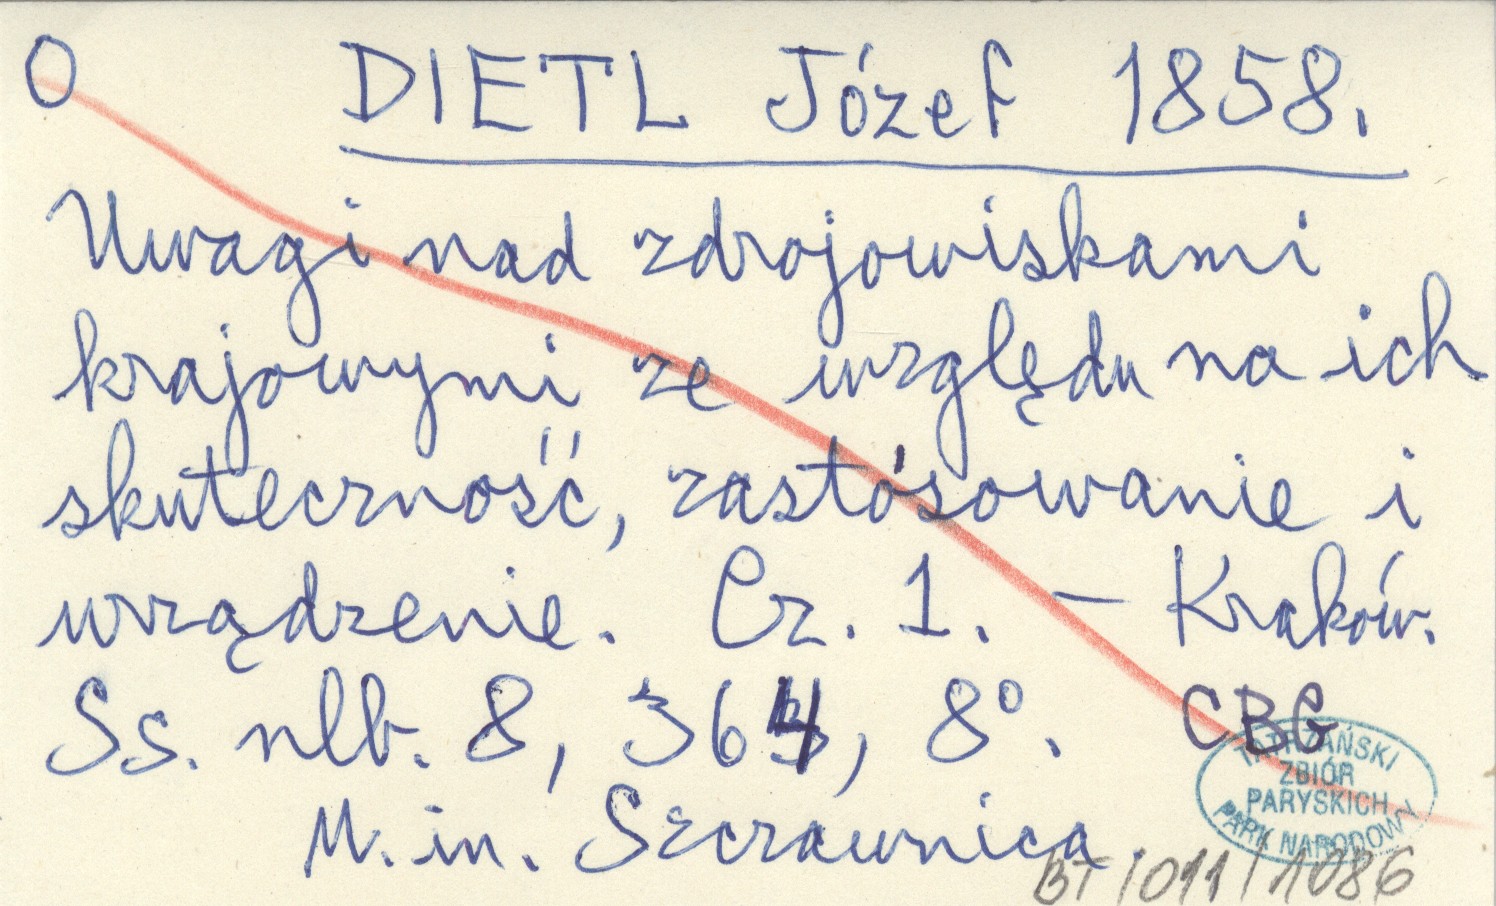 O DIETL Józef 1858.
Uwagi nad zdrojowiskami
krajowymi ze względu na ich
skuteczność, zastósowanie i
urządzenie. Cz. 1. – Kraków.
Ss. nlb. 8, 364, 8°. CBG
M. in. Szczawnica.
TATRZAŃSKI
ZBIÓR
PARYSKICH
PARK NARODOWY
BT/011/1086